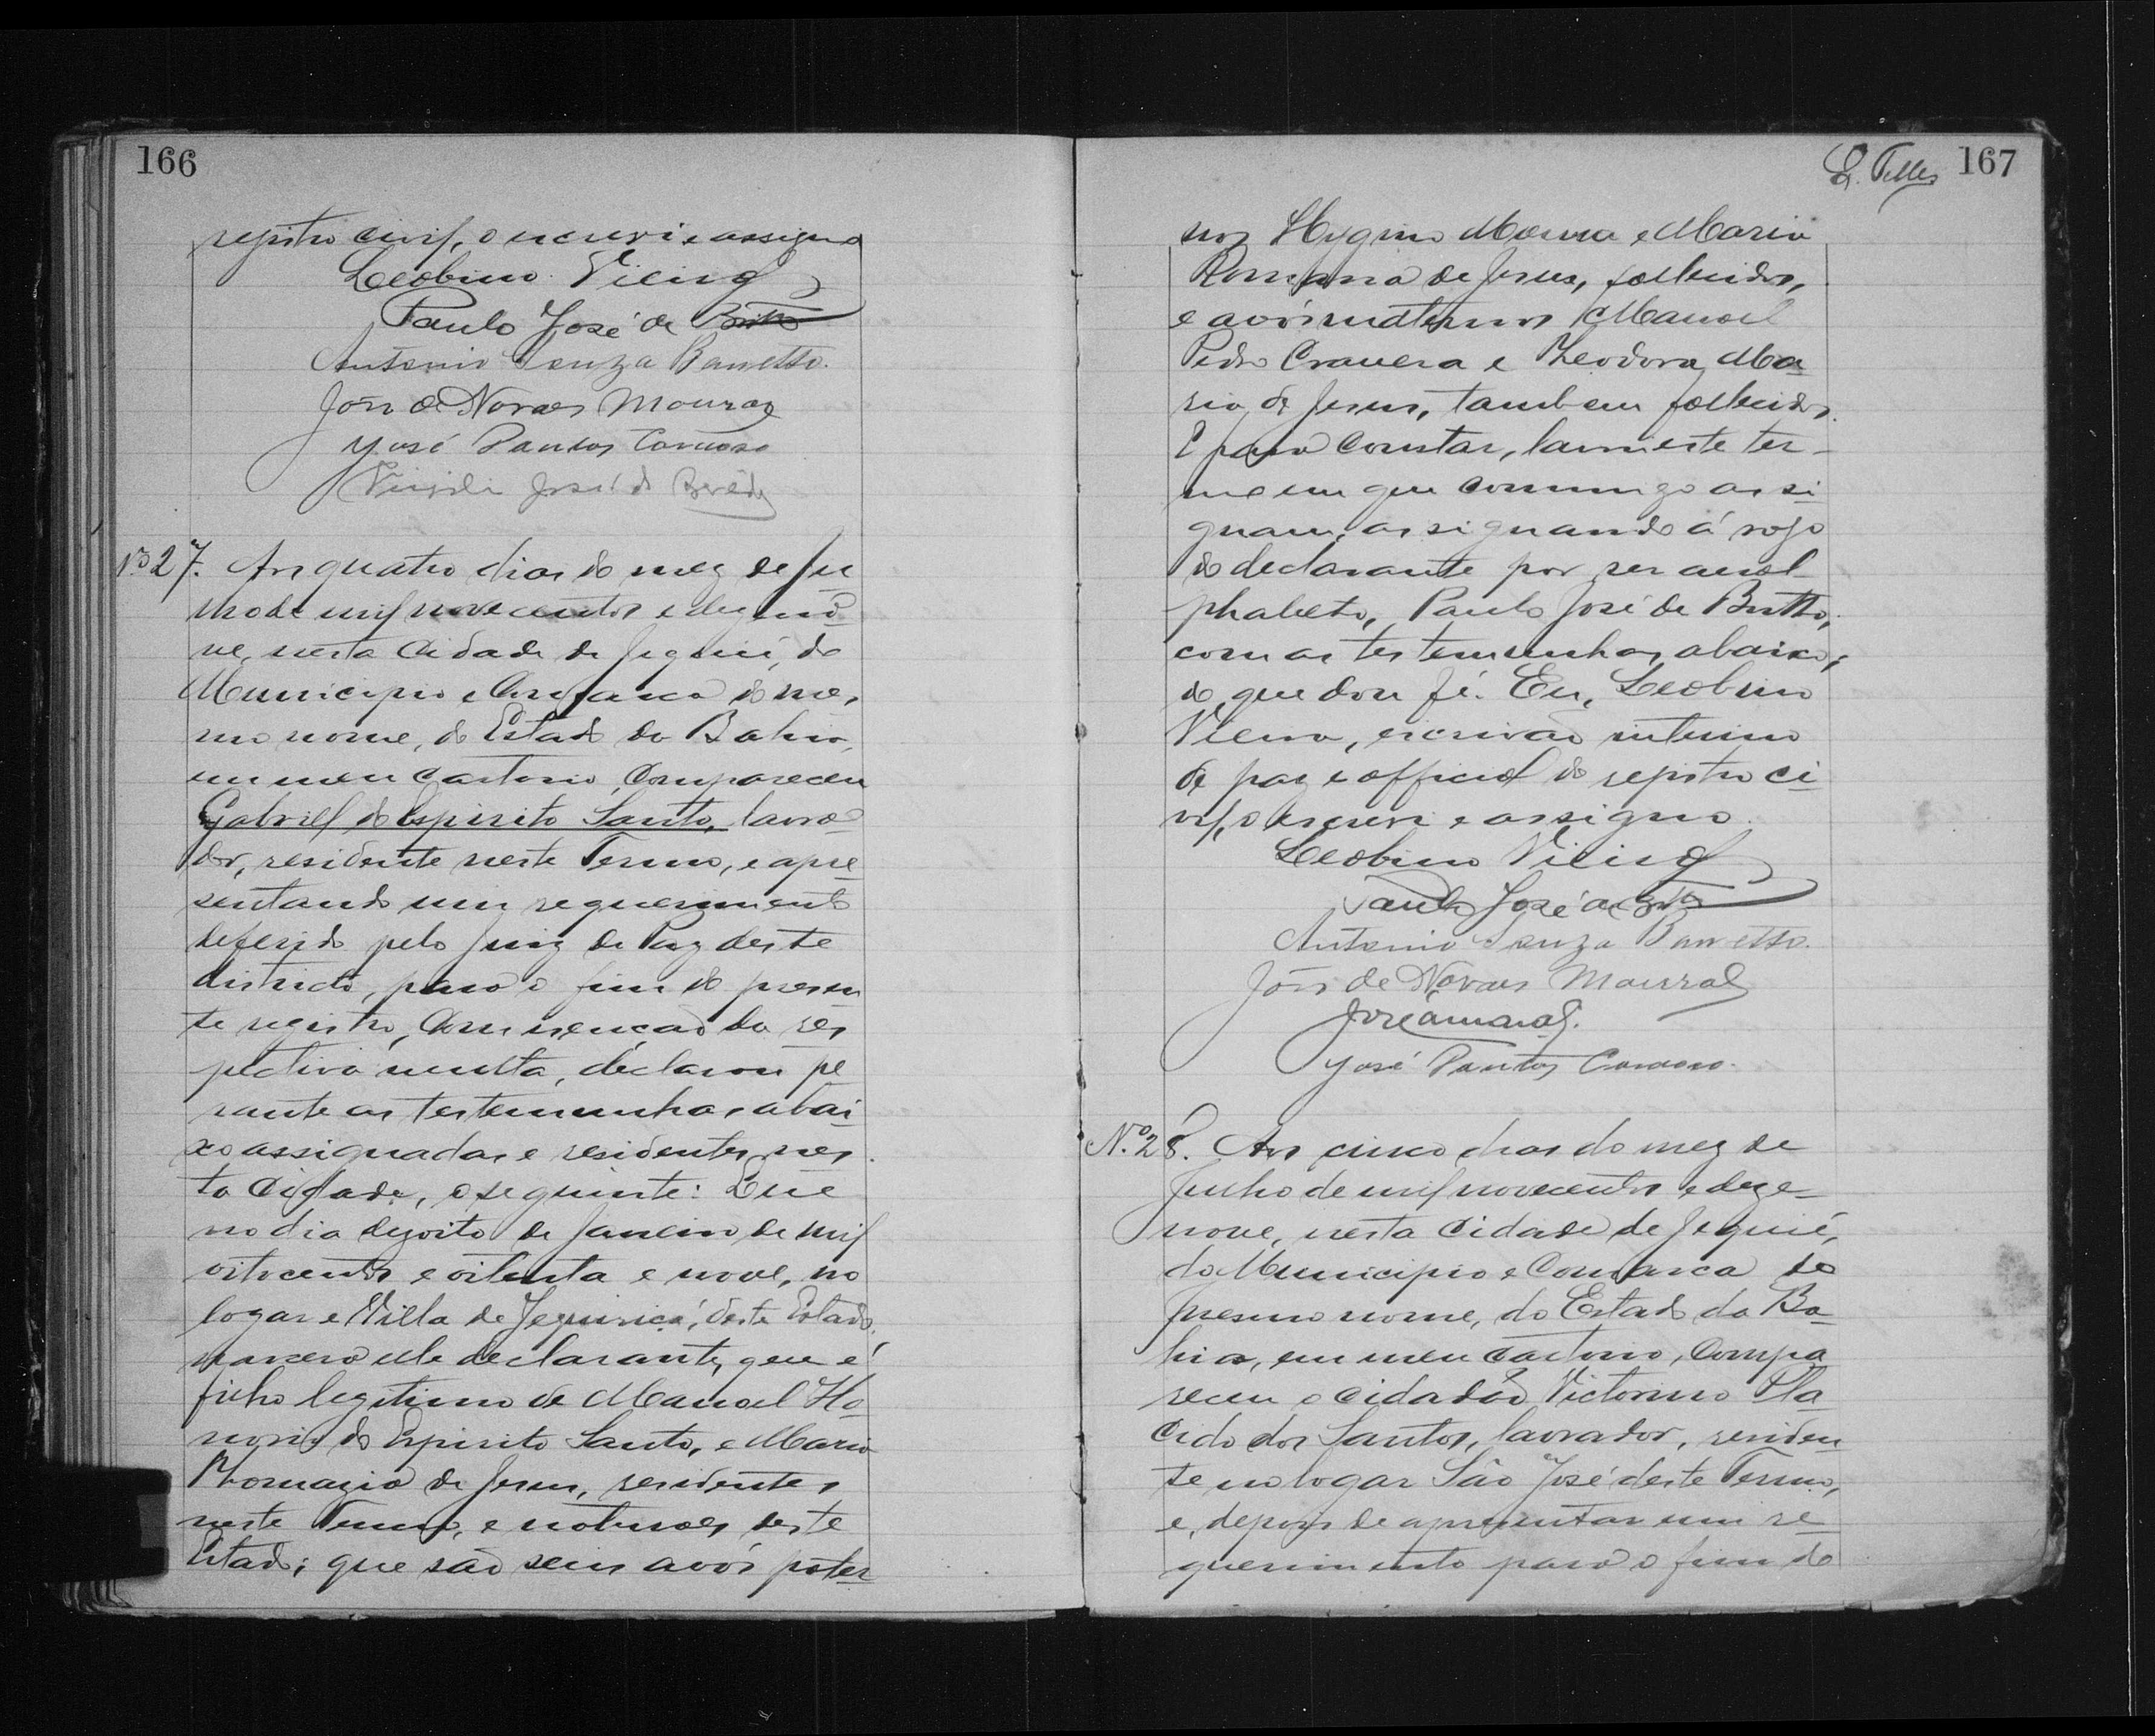 166
registro civil, o escrevi e assigno
Leobino Vieira
Paulo José de Britto
Antonio Souza Barretto.
João de Novaes Mouraz
José Santos Cardoso
José de
Nº 27. Aos quatro dias do mez de Ju
nho de mil novecentos e dezeno
ve, nesta Cidade de Jequié, do
Municipio e Comarca do mes,
mo nome, do Estado da Bahia,
em meu Cartorio, Compareceu
Gabriel do Espirito Santo, lavra-
dor, residente neste Termo, e apre
sentando um requerimento
deferido pelo Juiz de Paz deste
districto, para o fim do presen
te registro, Com isenção da res
pectiva multa, declarou pe
rante as testemunhas abai
xo assignadas e residentes nes
ta Cidade, o seguinte: Que
no dia dezoito de Janeiro de mil
oitocentos e oitenta e nove, no
logar e Villa de Jequiriçá, deste Estado,
nascera elle declarante, que é
filho legitimo de Manoel Ho
norio do Espirito Santo, e Maria
Thomazia de Jesus, residentes
neste Termo, e naturaes deste
Estado; que são seus avós pater
L. Telles 167
nos Hygino Moura e Maria
Romana de Jesus, fallecidos,
e avós maternos Manoel
Pedro Cravera e Theodora Ma
ria de Jesus, tambem fallecidos.
E para Constar, lavrei este ter-
mo em que commigo assi
gnam, assignando á rogo
do declarante por ser anal-
phabeto, Paulo José de Britto,
com as testemunhas abaixo;
do que dou fé. Eu, Leobino
Vieira, escrivão interino
de paz e official do registro ci
vil, o escrevi e assigno.
Leobino Vieira
Paulo José de Britto
Antonio Souza Barretto.
João de Novaes Mouraz
José Amaral.
José Santos Cardoso.
Nº. 28. Aos cinco dias do mez de
Junho de mil novecentos e deze-
nove, nesta Cidade de Jequié,
do Municipio e Comarca do
mesmo nome, do Estado da Ba-
hia, em meu Cartorio, Compa
receu o cidadão Victorino Pla
cido dos Santos, lavrador, residen
te no logar São José deste Termo,
e, depois de apresentar um re-
querimento para o fim do